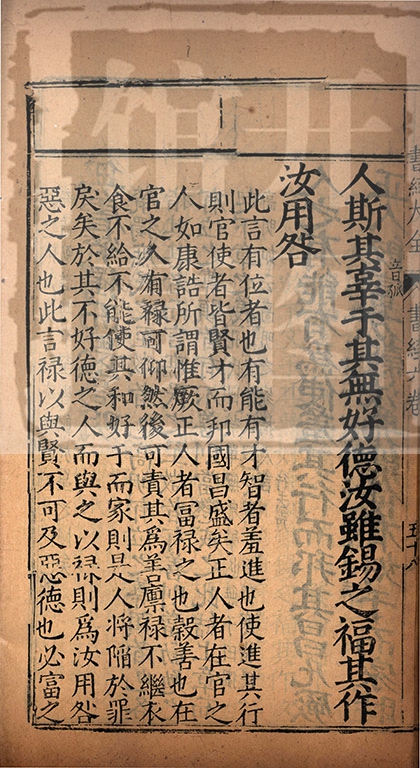 人斯其辜于其無好德汝雖錫之福其作
汝用咎
此言有位者也有能有才智者羞進也使進其行
則官使者皆賢才而邦國昌盛矣正人者在官之
人如康誥所謂惟厥正人者富祿之也榖善也在
官之人有禄可仰然後可責其為善廪禄不繼衣
食不給不能使其和好于而家則是人將陷於罪
戾矣於其不好德之人而與之以禄則為汝用咎
惡之人也此言禄以與賢不可及惡德也必富之
音孤